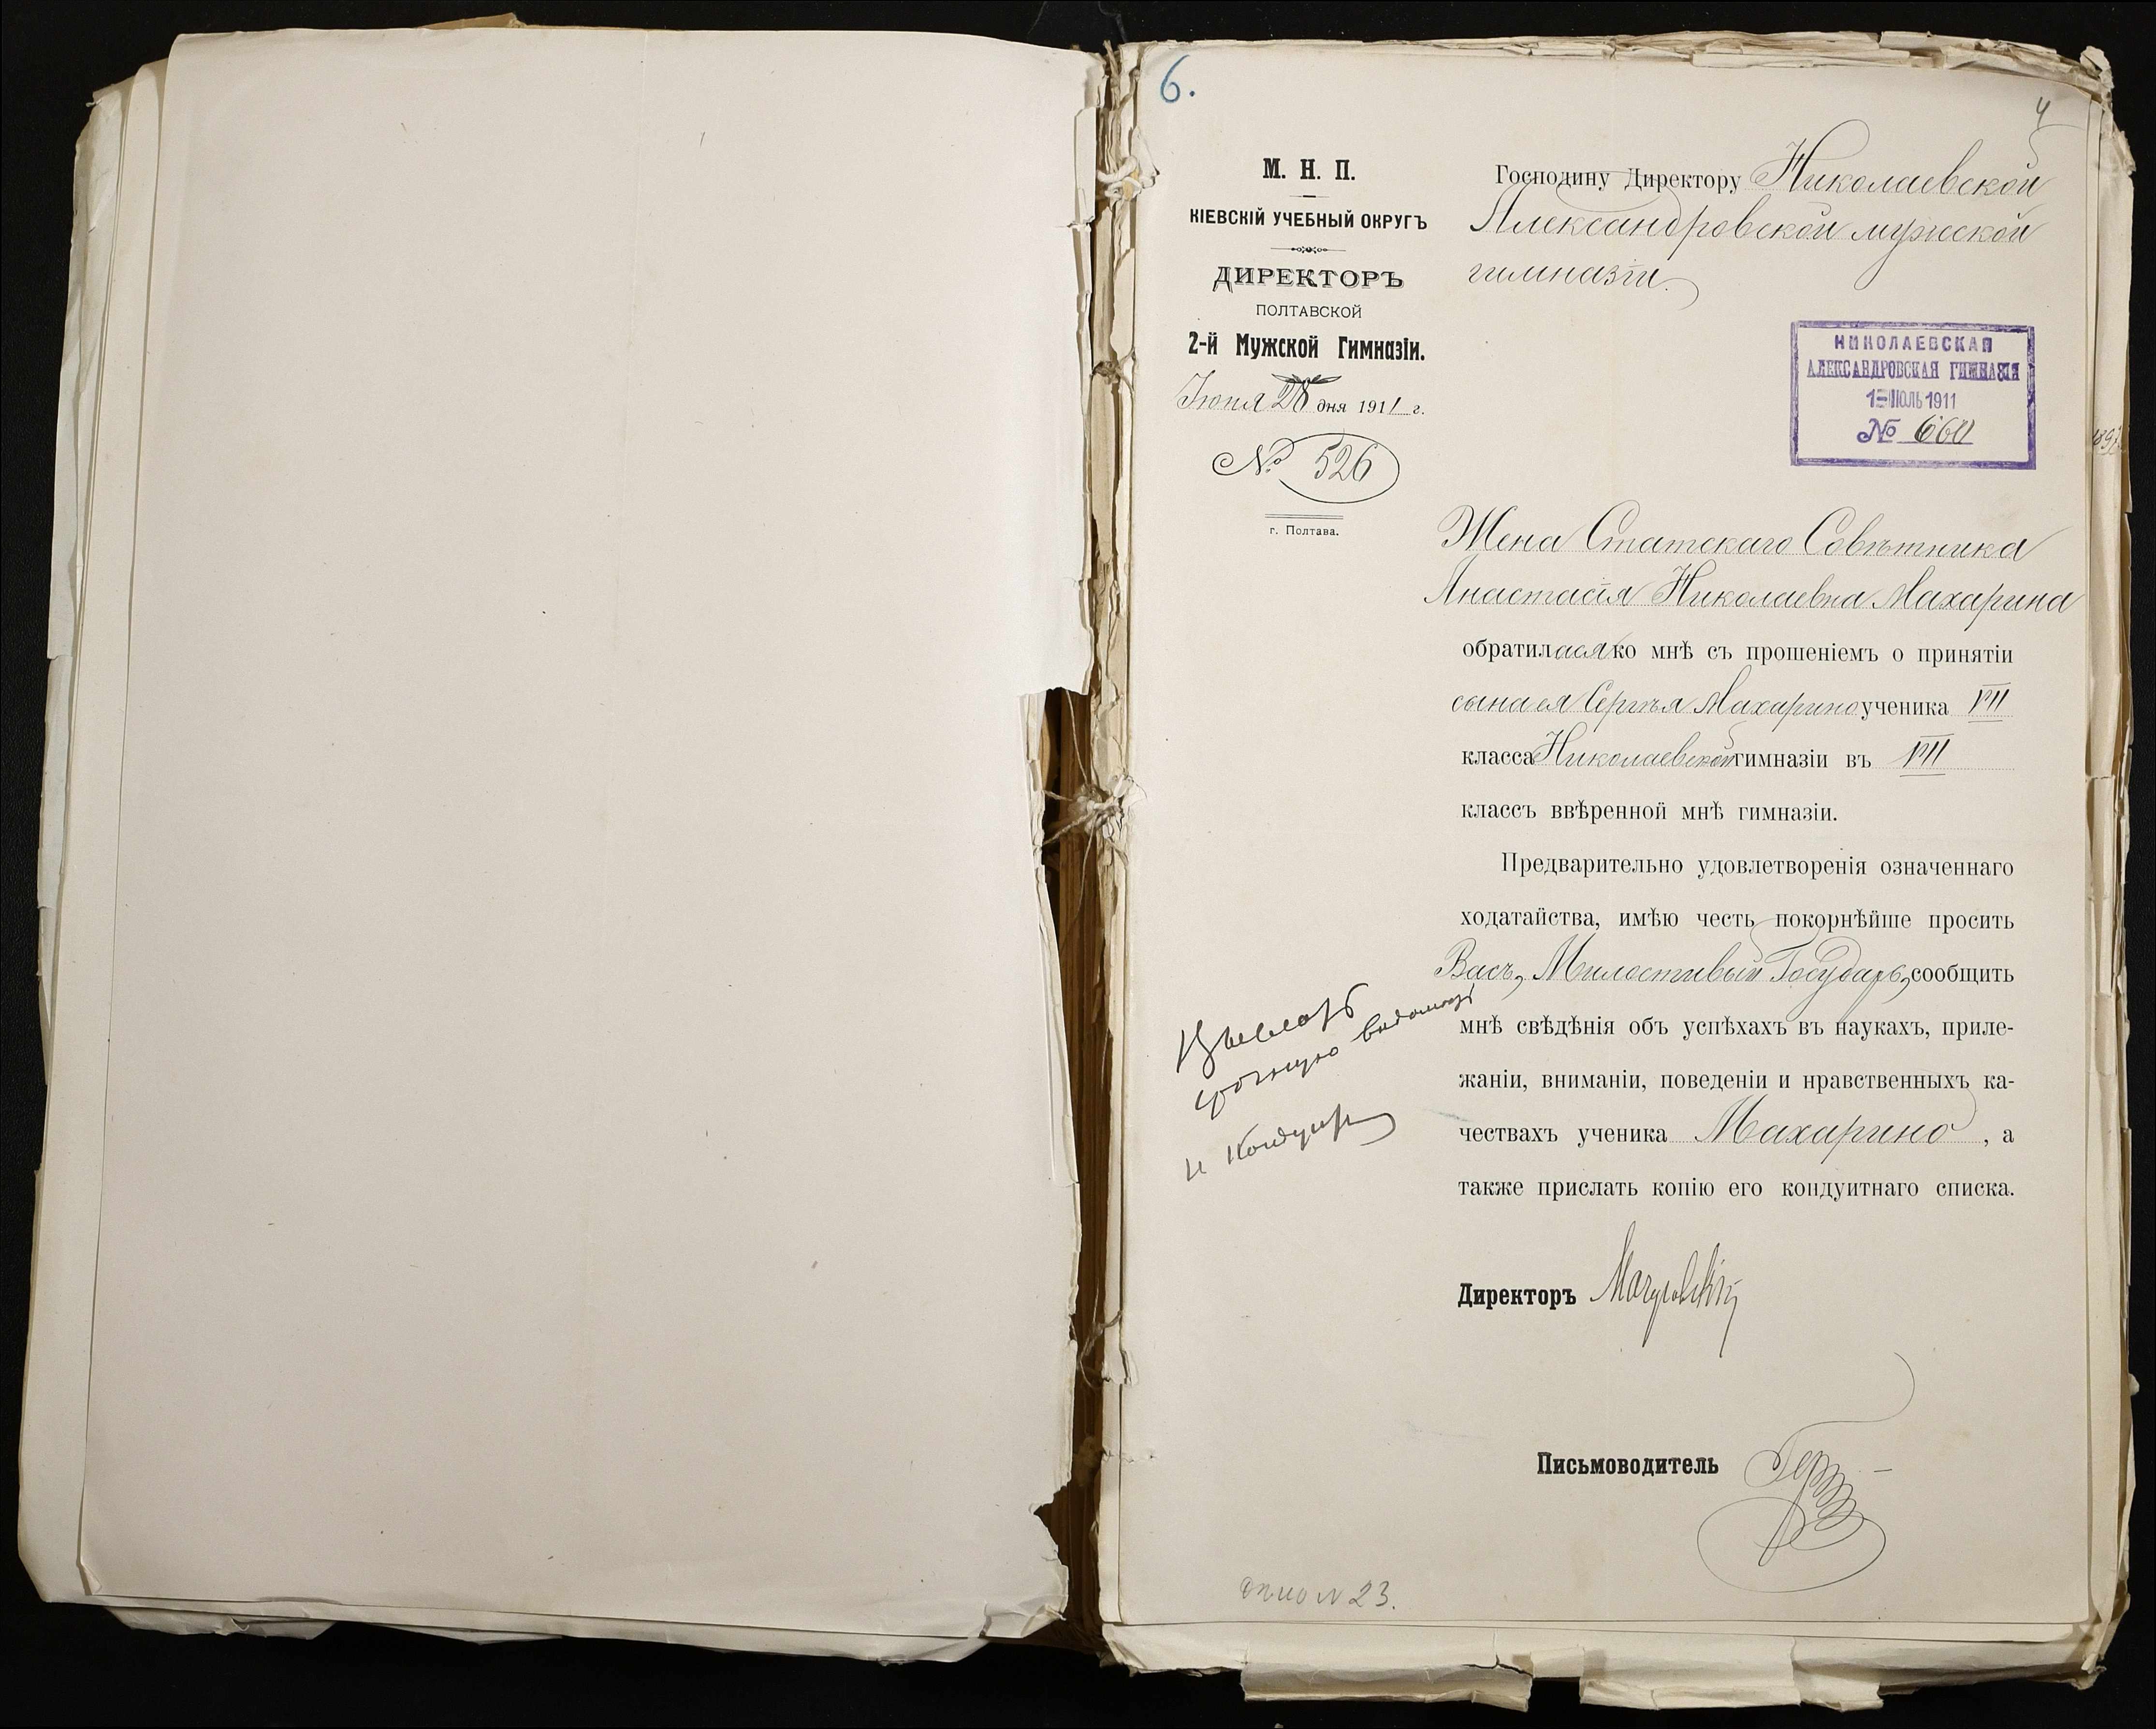 6.
4
М. Н. П.
КІЕВСКІЙ УЧЕБНЫЙ ОКРУГЪ
ДИРЕКТОРЪ
ПОЛТАВСКОЙ
2-й Мужской Гимназіи.
Іюня 28 дня 1911 г.
№ 526
г. Полтава.
Господину Директору Николаевской
Александровской мужской
гимназіи.
НИКОЛАЕВСКАЯ
АЛЕКСАНДРОВСКАЯ ГИМНАЗІЯ
1 ІЮЛЬ 1911
№ 660
Жена Статскаго Совѣтника
Анастасія Николаевна Махарина
обратилася ко мнѣ съ прошеніемъ о принятіи
сына ея Сергѣя Махарино ученика VII
класса Николаевской гимназіи въ VII
классъ ввѣренной мнѣ гимназіи.
Предварительно удовлетворенія означеннаго
ходатайства, имѣю честь покорнѣйше просить
Васъ, Милостивый Государь, сообщить
мнѣ свѣдѣнія объ успѣхахъ въ наукахъ, приле-
жаніи, вниманіи, поведеніи и нравственныхъ ка-
чествахъ ученика Махарино, а
также прислать копію его кондуитнаго списка.
Выслать
срочную ведомость
и кондуит
Директоръ
Письмоводитель
дело N 23.